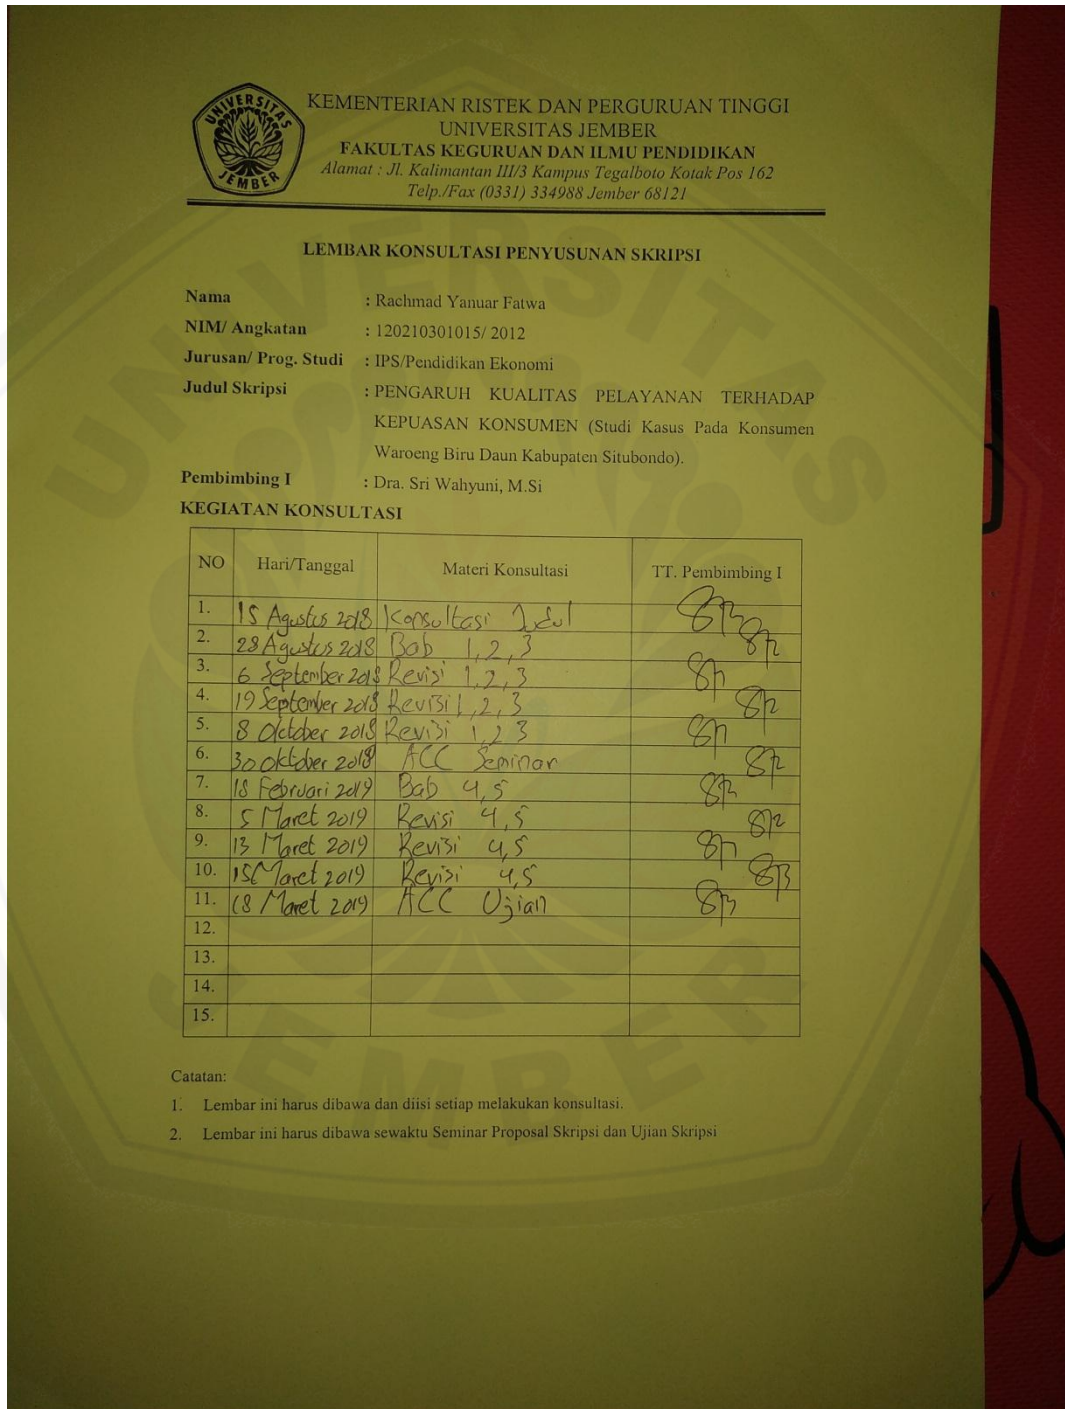 UNIVERSITAS
JEMBER
KEMENTERIAN RISTEK DAN PERGURUAN TINGGI
UNIVERSITAS JEMBER
FAKULTAS KEGURUAN DAN ILMU PENDIDIKAN
Alamat : Jl. Kalimantan III/3 Kampus Tegalboto Kotak Pos 162
Telp./Fax (0331) 334988 Jember 68121
LEMBAR KONSULTASI PENYUSUNAN SKRIPSI
Nama : Rachmad Yanuar Fatwa
NIM/ Angkatan : 120210301015/ 2012
Jurusan/ Prog. Studi : IPS/Pendidikan Ekonomi
Judul Skripsi : PENGARUH KUALITAS PELAYANAN TERHADAP
KEPUASAN KONSUMEN (Studi Kasus Pada Konsumen
Waroeng Biru Daun Kabupaten Situbondo).
Pembimbing I : Dra. Sri Wahyuni, M.Si
KEGIATAN KONSULTASI
NO Hari/Tanggal Materi Konsultasi TT. Pembimbing I
1. 15 Agustus 2018 Konsultasi Judul
2. 28 Agustus 2018 Bab 1,2,3
3. 6 September 2018 Revisi 1,2,3
4. 19 September 2018 Revisi 1,2,3
5. 8 Oktober 2018 Revisi 1,2,3
6. 30 oktober 2018 ACC Seminar
7. 18 Februari 2019 Bab 4,5
8. 5 Maret 2019 Revisi 4,5
9. 13 Maret 2019 Revisi 4,5
10. 15 Maret 2019 Revisi 4,5
11. 18 Maret 2019 ACC Ujian
12.
13.
14.
15.
Catatan:
1. Lembar ini harus dibawa dan diisi setiap melakukan konsultasi.
2. Lembar ini harus dibawa sewaktu Seminar Proposal Skripsi dan Ujian Skripsi
UNIVERSITAS
JEMBER